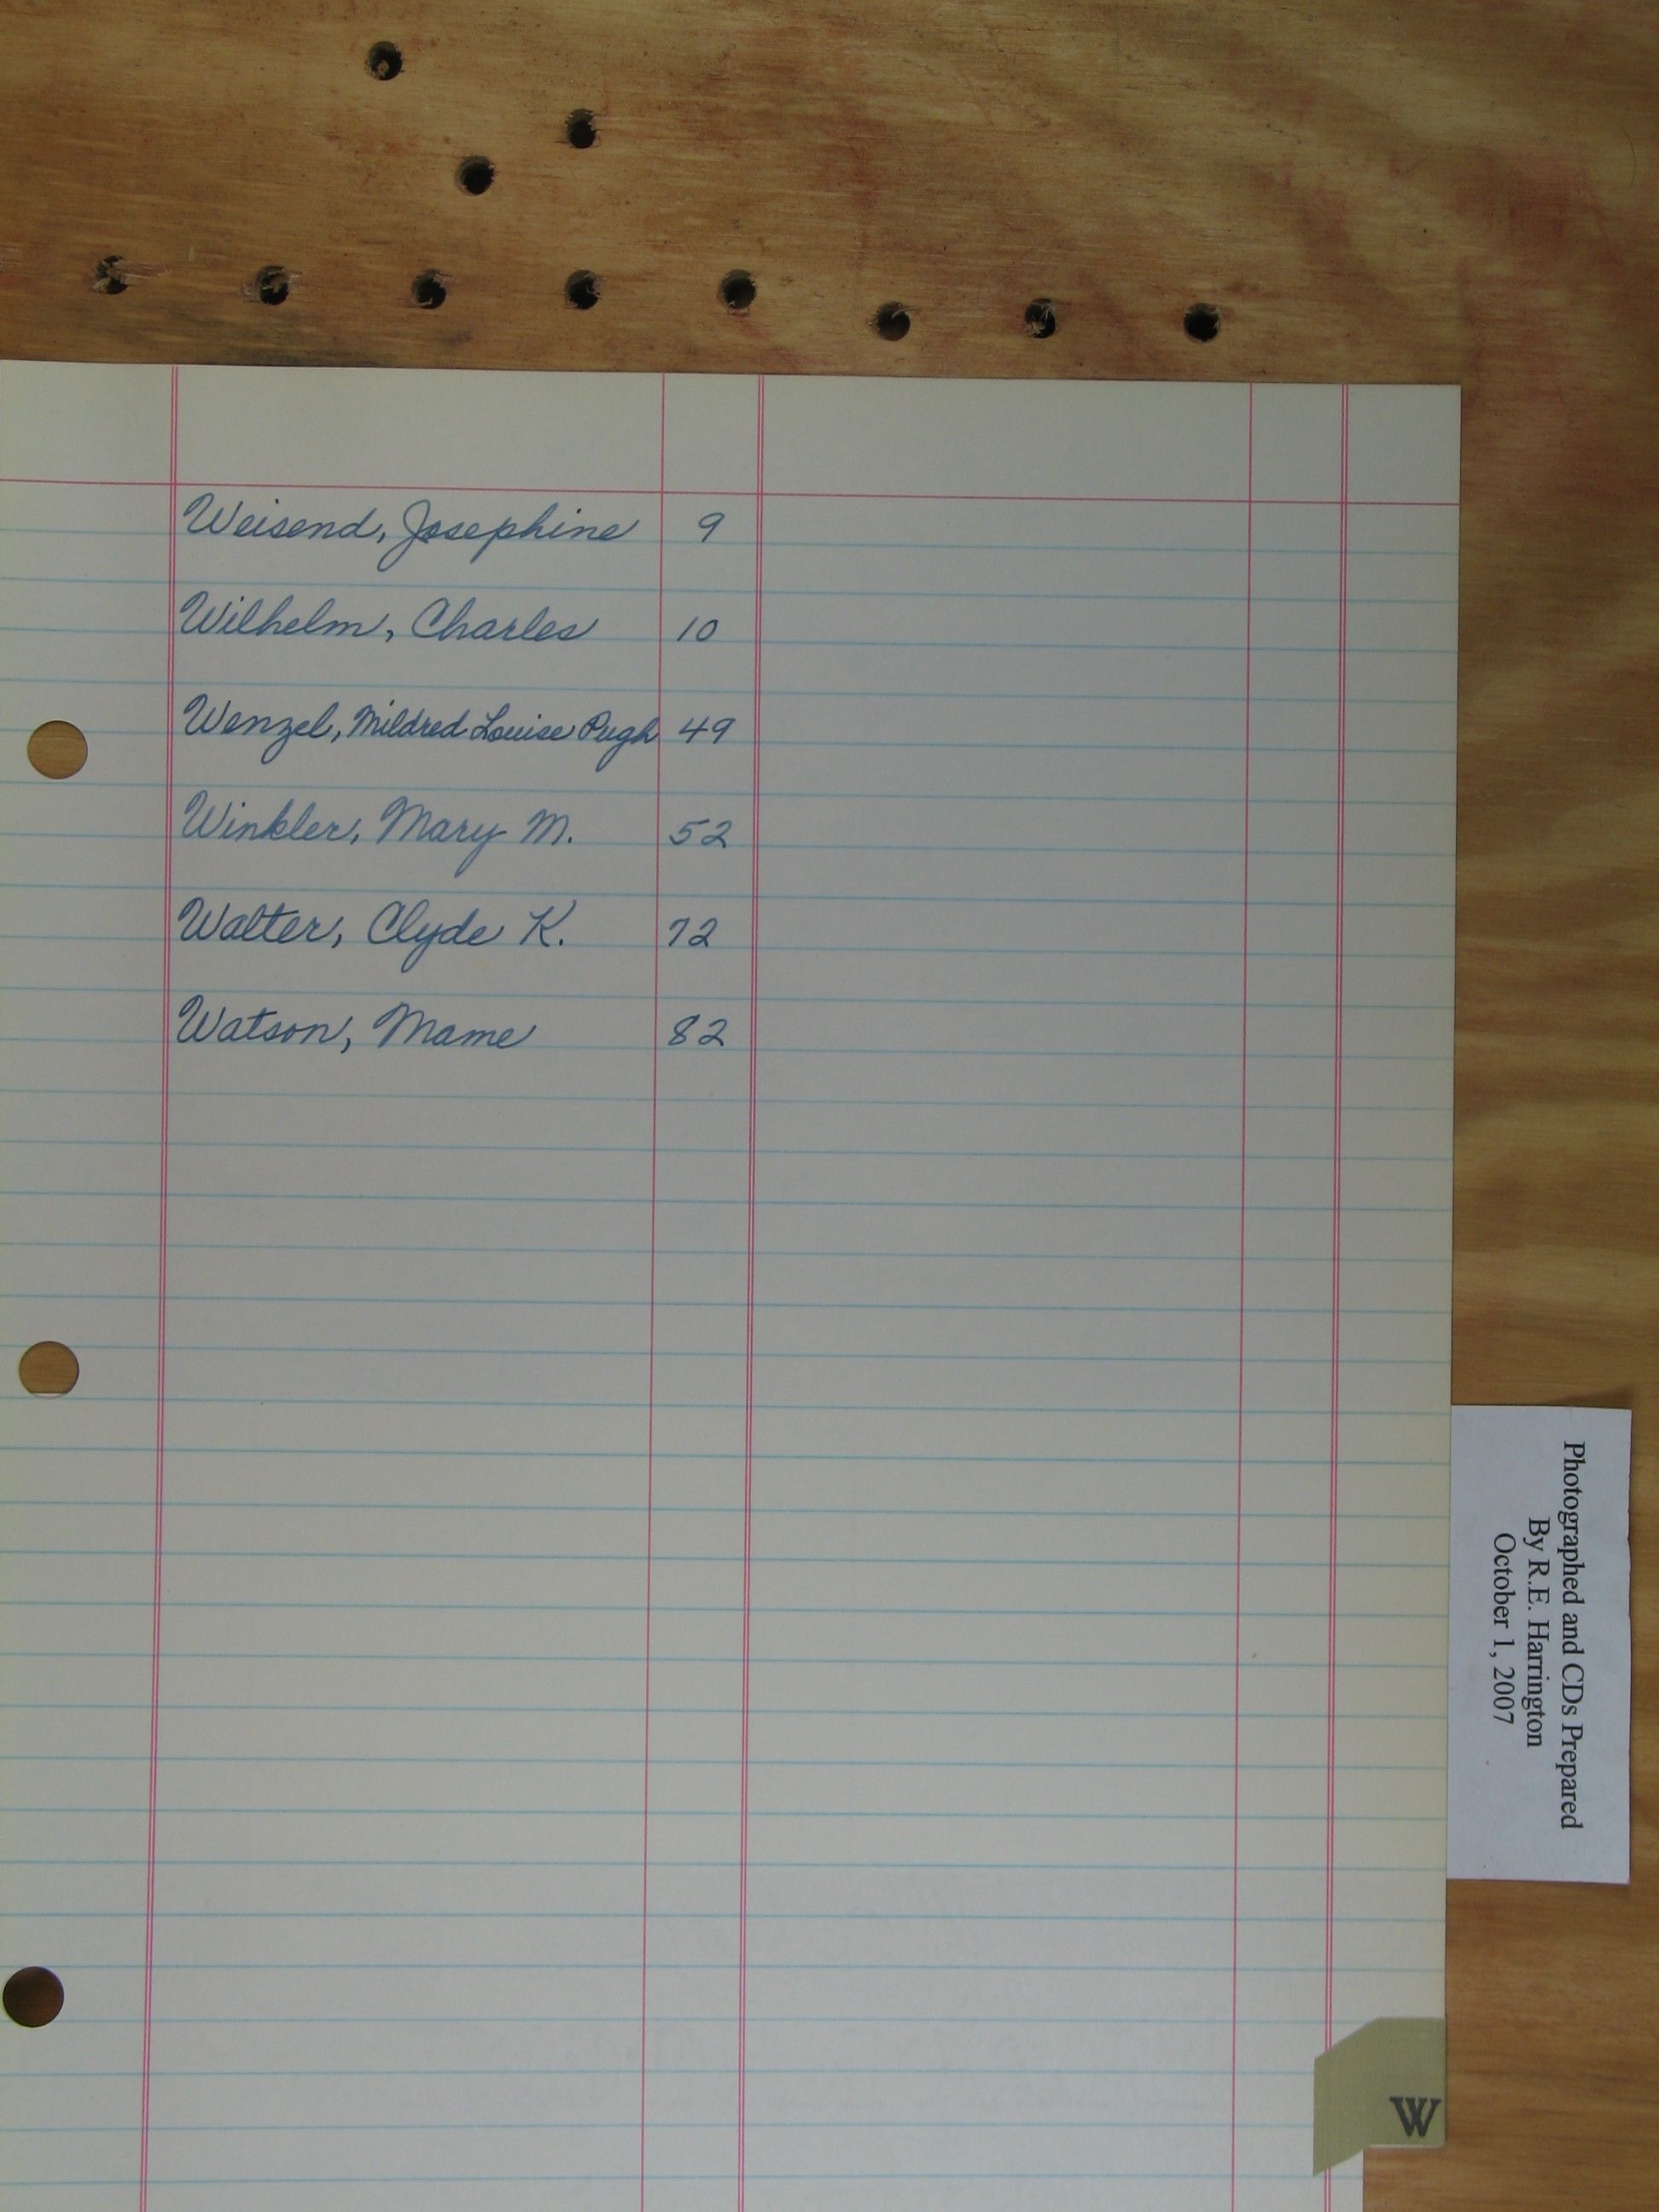 Weisend, Josephine 9
Wilhelm, Charles 10
Wenzel, Mildred Louise Pugh 49
Winkler, Mary M. 52
Walter, Clyde K. 72
Watson, Mame 82
Photographed and CDs Prepared
By R.E. Harrington
October 1, 2007
W